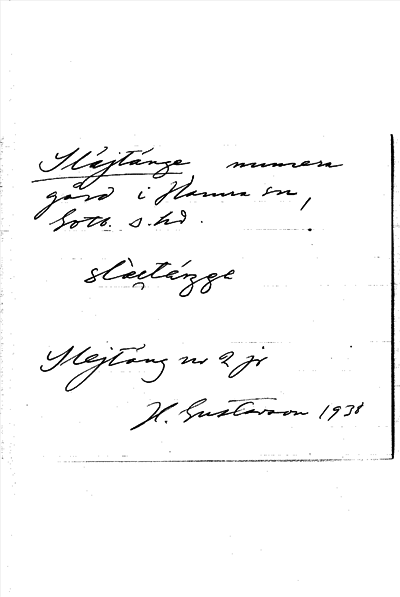 Släjtänge numera
gård i Hamra sn,
Gotl. s. hd.
slàetǽŋge
Slejtäng nr 2 jr
H. Gustavson 1938